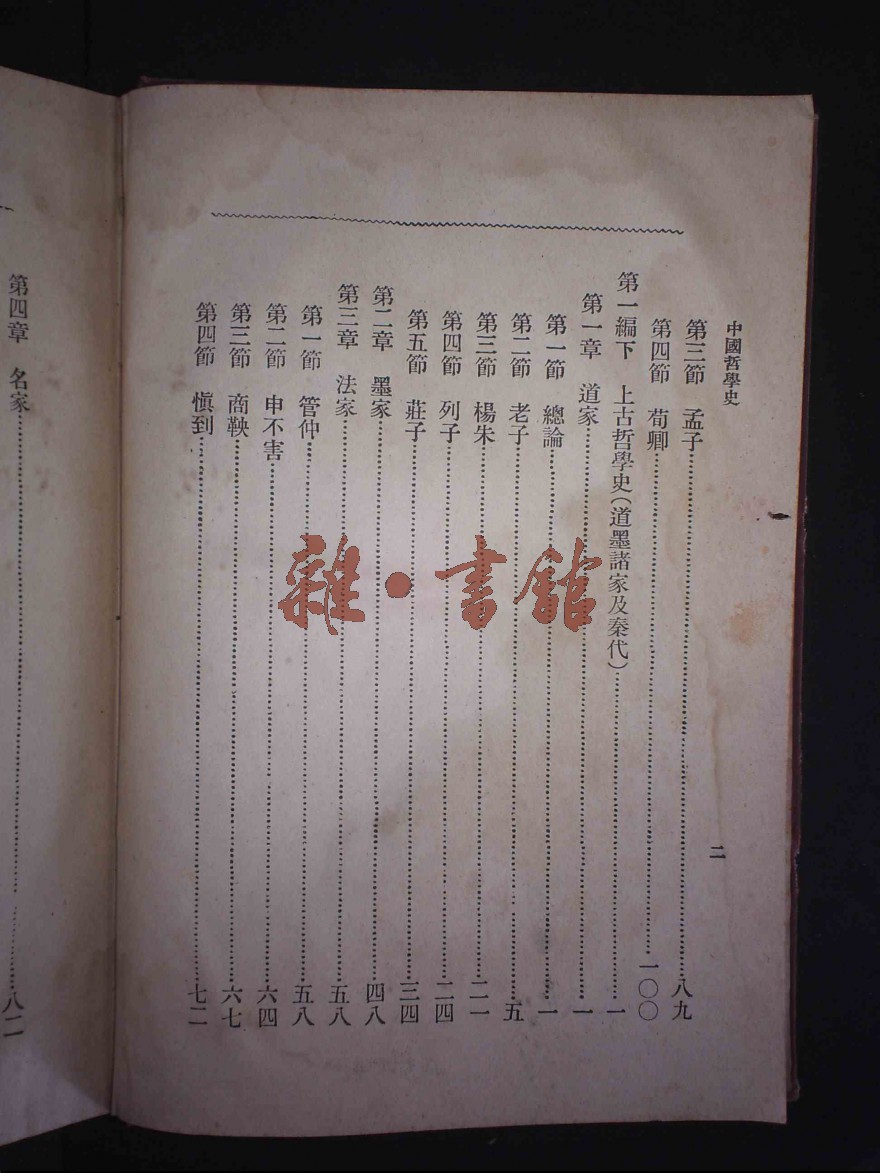 中國哲學史
二
第三節 孟子……八九
第四節 荀卿……一〇〇
第一編下 上古哲學史(道墨諸家及秦代)……一
第一章 道家……一
第一節 總論……一
第二節 老子……五
第三節 楊朱……二一
第四節 列子……二四
第五節 莊子……三四
第二章 墨家……四八
第三章 法家……五八
第一節 管仲……五八
第二節 申不害……六四
第三節 商鞅……六七
第四節 愼到……七二
第四章 名家……八二
雜·書館